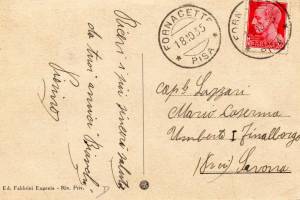 Ricevi i più sinceri saluti
da tuoi amici
Pierino
FORNACETTE
18.10.35
PISA
FORNA
Cap. Lazzari
Mario Caserma
Umberto I Finalborgo
Savona
Ed. Fabbrini Eugenio - Riv. Priv.